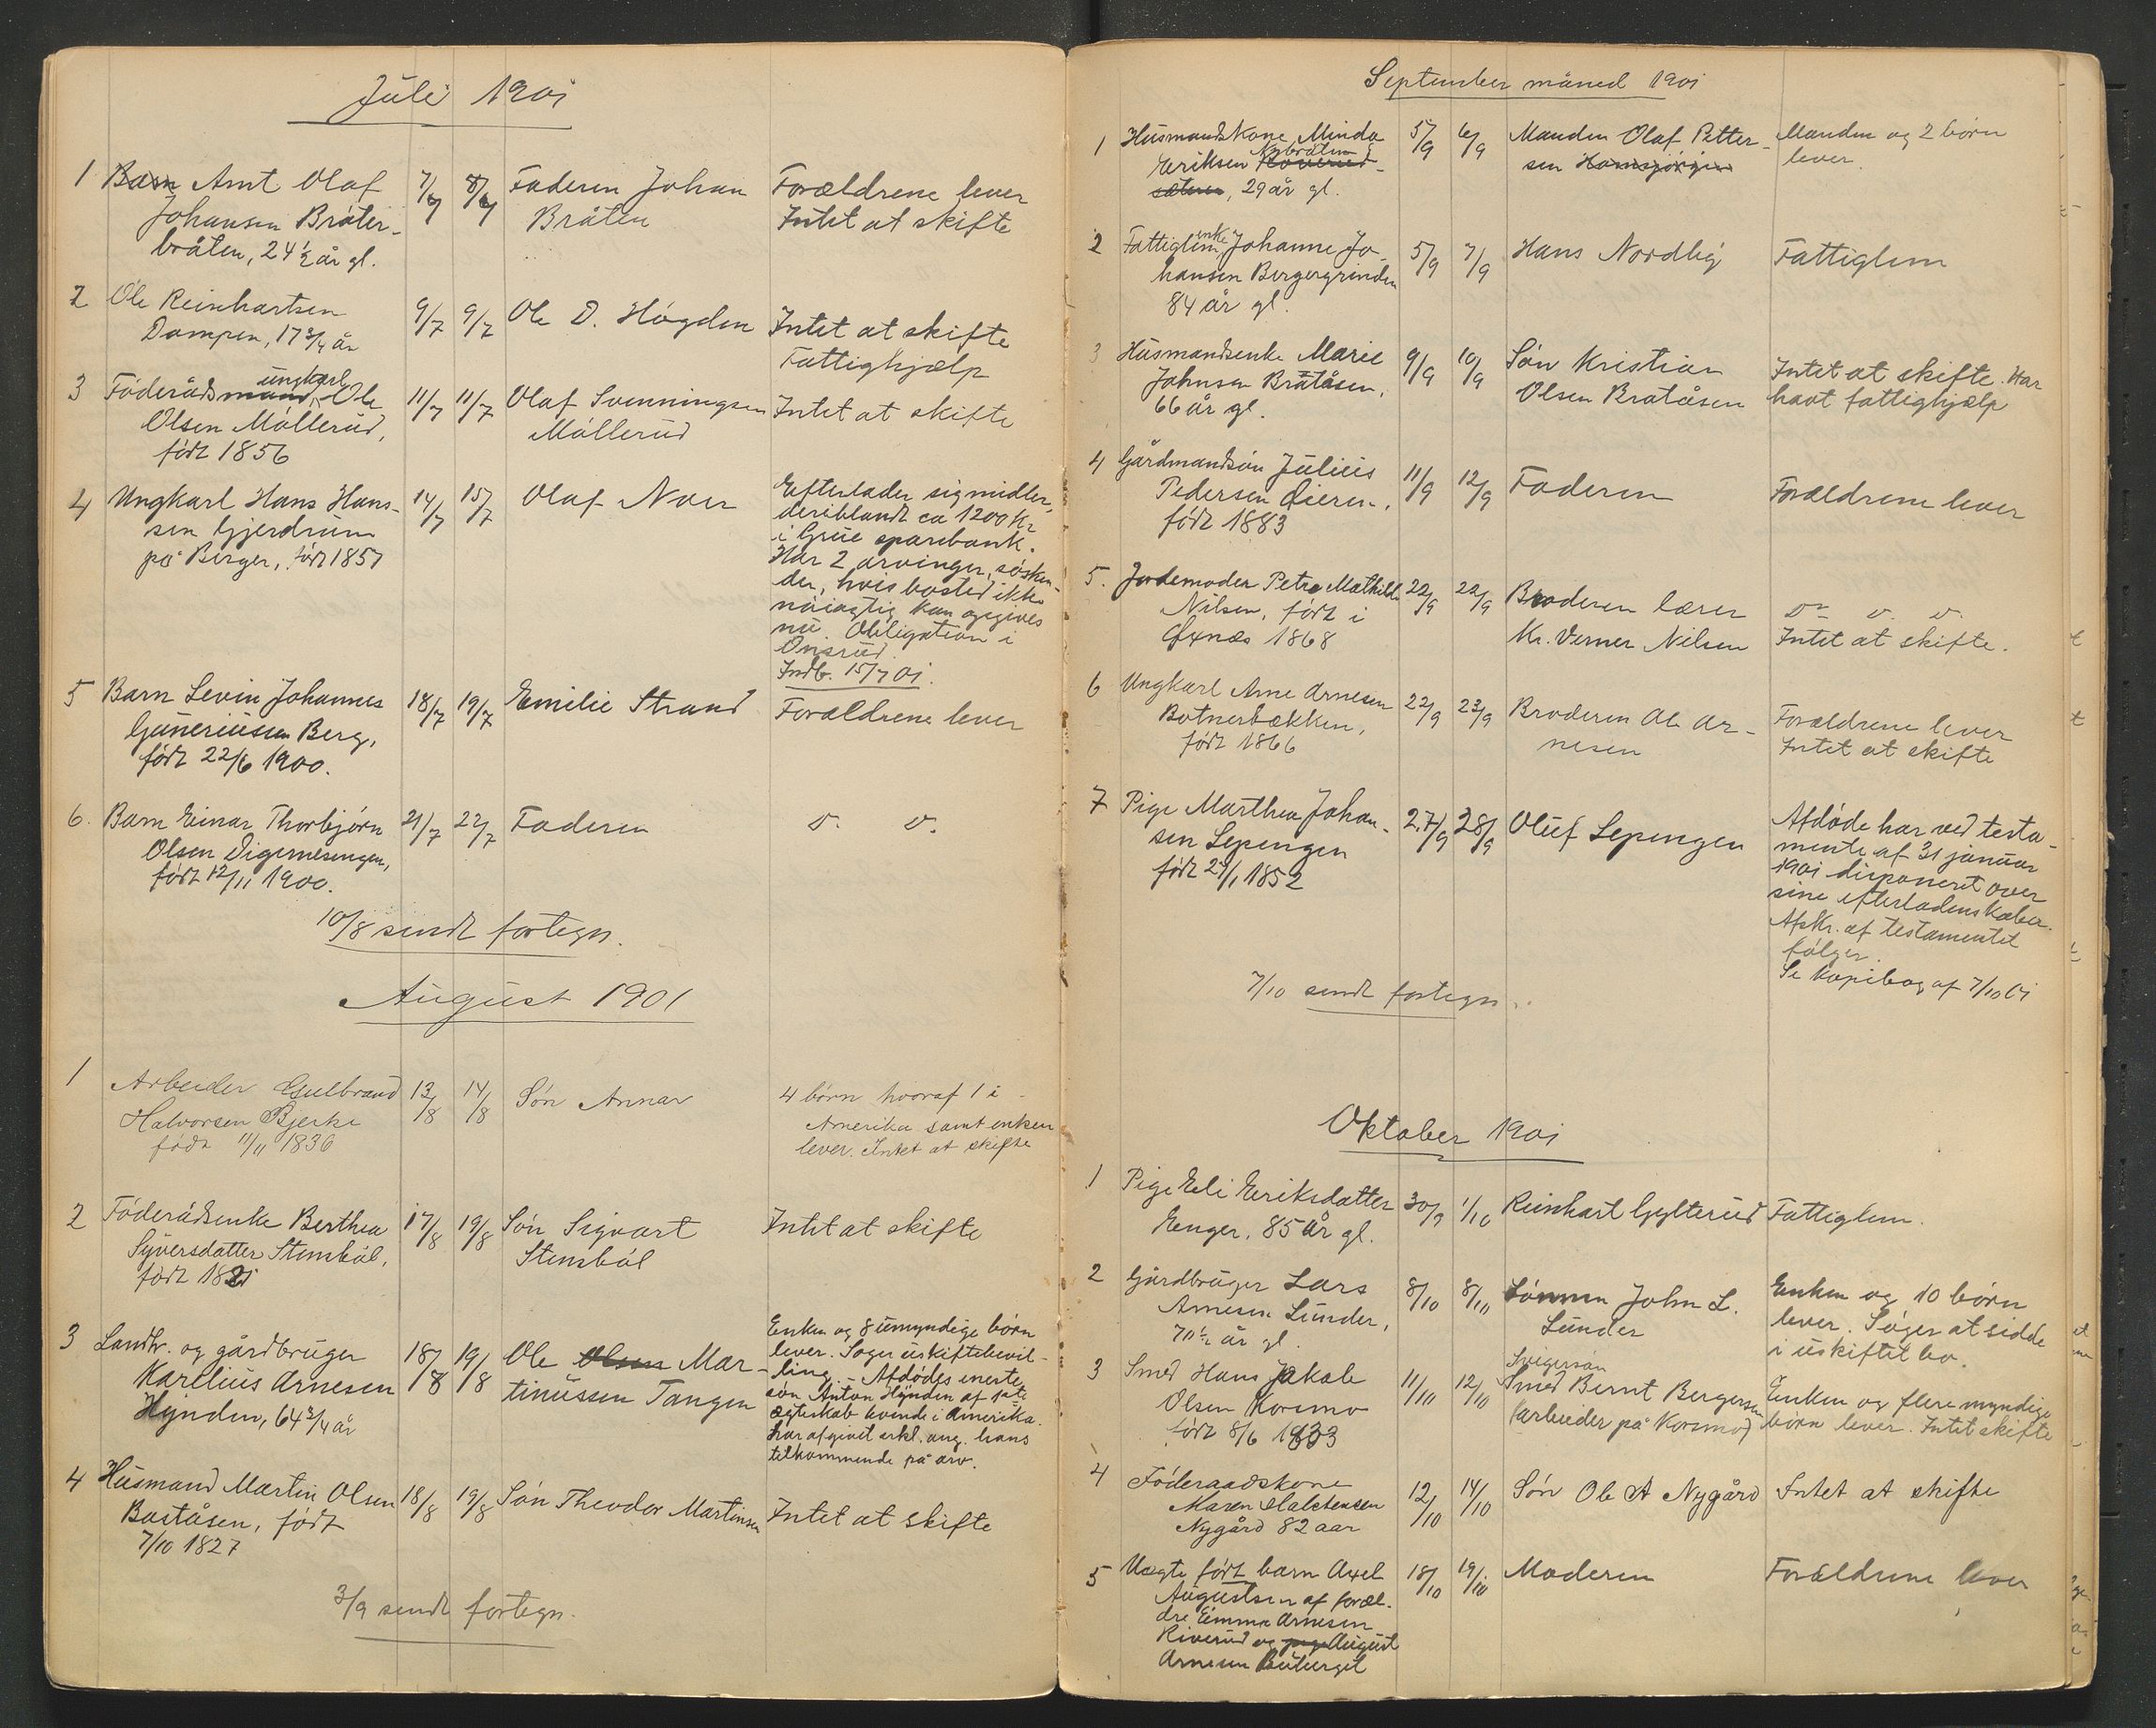 Juli 1901
1 Barn Arnt Olaf 7/7 8/7 Faderen Johan Forældrene lever
Johansen Bråter- Bråten Intet at skifte
bråten, 24 1/2 år gl.
2 Ole Reinhartsen 9/7 9/7 Ole D. Högden Intet at skifte
Dampen, 17 3/4 år Fattighjælp
3 Föderåds mand ungkarl Ole 11/7 11/7 Olaf Svenningsen Intet at skifte
Olsen Möllerud, Möllerud
født 1856
4 Ungkarl Hans Hans- 14/7 15/7 Olaf Noer Efterlader sig midler,
sen Gjerdrum deriblandt ca 1200 Kr
på Berger, født 1857 i Grue sparebank.
Har 2 arvinger, sösken-
der, hvis bosted ikke
nöiagtig kan opgives
nu. Obligation i
Onsrud.
Indb. 15/7 01.
5 Barn Levin Johannes 18/7 19/7 Emilie Strand Forældrene lever
Guneriusen Berg,
født 22/6 1900.
6. Barn Einar Thorbjörn 21/7 22/7 Faderen D. D.
Olsen Digernesengen,
født 12/11 1900.
10/8 sendt fortegn.
August 1901
1 Arbeider Gulbrand 13/8 14/8 Sön Annar 4 börn hvoraf 1 i
Halvorsen Bjerke Amerika samt enken
født 11/11 1836 lever. Intet at skifte
2 Föderådsenke Berthea 17/8 19/8 Sön Sigvart Intet at skifte
Syversdatter Stensböl, Stensböl
født 1821
3 Landhr. og gårdbruger 18/8 19/8 Ole Olsen Mar- Enken og 8 umyndige börn
Karelius Arnesen tinussen Tangen lever. Söger uskiftebevil-
Hynden, 64 3/4 år ling. - Afdødes eneste
sön Anton Hynden af 1ste
ægteskab boende i Amerika.
har afgivet erkl. ang. hans
tilkommende på arv.
4 Husmand Martin Olsen 18/8 19/8 Sön Theodor Martinsen Intet at skifte
Baståsen, født
7/10 1827
3/9 sendt fortegn.
September måned 1901
1 Husmandskone Minda 5/9 6/9 Manden Olaf Petter- Manden og 2 börn
Eriksen Nybråten sen lever.
, 29 år gl.
2 Fattiglem enke Johanne Jo- 5/9 7/9 Hans Nordby Fattiglem
hansen Bergergrinden
84 år gl.
3 Husmandsenke Marie 9/9 10/9 Sön Kristian Intet at skifte. Har
Johnsen Bråtåsen, Olsen Bratåsen havt fattighjælp
66 år gl.
4 Gårdmandssön Julius 11/9 12/9 Faderen Forældrene lever
Pedersen Oieren,
født 1883
5. Jordemoder Petra Mathilde 22/9 22/9 Broderen lærer D. D. D.
Nilsen, født i Kr. Verner Nilsen Intet at skifte.
Öxnæs 1868
6 Ungkarl Arne Arnesen 22/9 23/9 Broderen Ole Ar- Forældrene lever
Botnerbækken, nesen Intet at skifte
født 1866
7 Pige Marthea Johan- 27/9 28/9 Oluf Lepengen Afdöde har ved testa-
sen Lepengen mente af 31 januar
født 27/1 1852 1901 disponeret over
sine efterladenskaber.
Afskr. af testamentet
fölger.
Se kopibog af 7/10 01
7/10 sendt fortegn.
Oktober 1901
1 Pige Eli Eriksdatter 30/9 1/10 Reinhart Gylterud Fattiglem.
Enger, 85 år gl.
2 Gårdbruger Lars 8/10 8/10 Sönnen John L. Enken og 10 börn
Arnesen Lunder, Lunder lever. Söger at sidde
70 1/2 år gl. i uskiftet bo.
3 Smed Hans Jakob 11/10 12/10 Svigersön
Olsen Korsmo Smed Bernt Bergersen Enken og flere myndige
født 8/6 1833 (arbeider på Korsmo) börn lever. Intet skifte
4 Föderaadskone 12/10 14/10 Sön Ole A Nygård Intet at skifte
Maren Halstensen
Nygård 82 aar
5 Uægte født barn Axel 18/10 19/10 Moderen Forældrene lever
Augustsen af foræl-
dre Emma Arnesen
Riverud og August
Arnesen Buberget